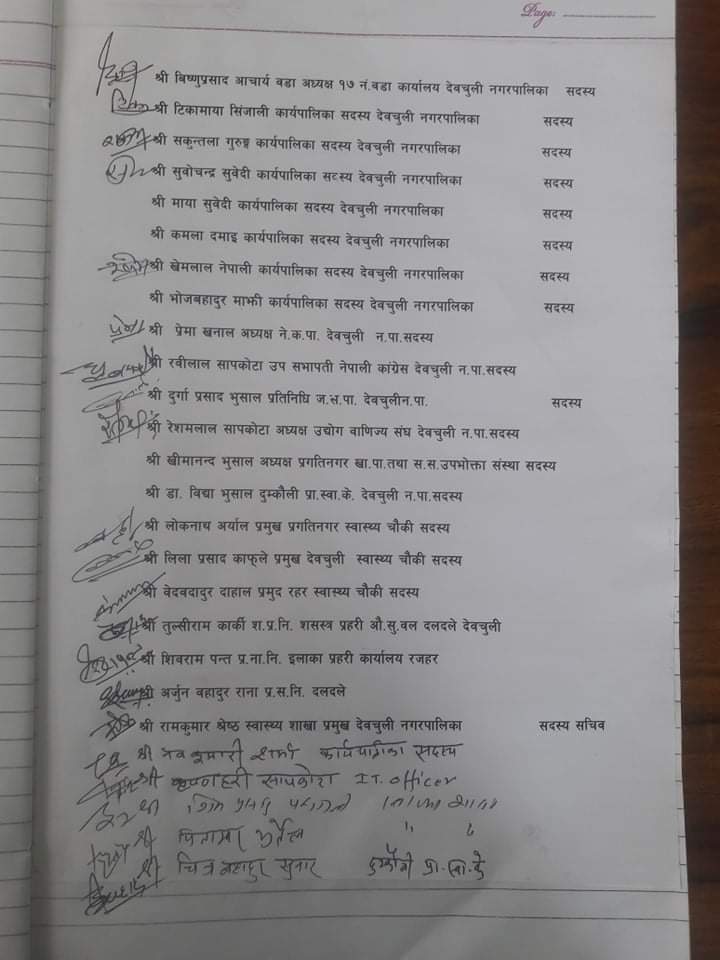 Page:
श्री बिष्णुप्रसाद आचार्य वडा अध्यक्ष १७ नं.वडा कार्यालय देवचुली नगरपालिका सदस्य
श्री टिकामाया सिंजाली कार्यपालिका सदस्य देवचुली नगरपालिका सदस्य
श्री सकुन्तला गुरुङ्ग कार्यपालिका सदस्य देवचुली नगरपालिका सदस्य
श्री सुवोचन्द्र सुवेदी कार्यपालिका सदस्य देवचुली नगरपालिका सदस्य
श्री माया सुवेदी कार्यपालिका सदस्य देवचुली नगरपालिका सदस्य
श्री कमला दमाइ कार्यपालिका सदस्य देवचुली नगरपालिका सदस्य
श्री खेमलाल नेपाली कार्यपालिका सदस्य देवचुली नगरपालिका सदस्य
श्री भोजबहादुर माझी कार्यपालिका सदस्य देवचुली नगरपालिका सदस्य
श्री प्रेमा खनाल अध्यक्ष ने.क.पा. देवचुली न.पा.सदस्य
श्री रवीलाल सापकोटा उप सभापती नेपाली कांग्रेस देवचुली न.पा.सदस्य
श्री दुर्गा प्रसाद भुसाल प्रतिनिधि देवचुलीन.पा. सदस्य
श्री रेशमलाल सापकोटा अध्यक्ष उद्योग वाणिज्य संघ देवचुली न.पा.सदस्य
श्री खीमानन्द भुसाल अध्यक्ष प्रगतिनगर खा.पा.तथा स.स.उपभोक्ता संस्था सदस्य
श्री डा. विद्या भुसाल दुम्कौली प्रा.स्वा.के. देवचुली न.पा.सदस्य
श्री लोकनाथ अर्याल प्रमुख प्रगतिनगर स्वास्थ्य चौकी सदस्य
श्री लिला प्रसाद काफ्ले प्रमुख देवचुली स्वास्थ्य चौकी सदस्य
श्री वेदवदादुर दाहाल प्रमुद रहर स्वास्थ्य चौकी सदस्य
श्री तुल्सीराम कार्की श.प्र.नि. शसस्त्र प्रहरी औ.सु.वल दलदले देवचुली
श्री शिवराम पन्त प्र.ना.नि. इलाका प्रहरी कार्यालय रजहर
श्री अर्जुन वहादुर राना प्र.स.नि. दलदले
श्री रामकुमार श्रेष्ठ स्वास्थ्य शाखा प्रमुख देवचुली नगरपालिका सदस्य सचिव
श्री कुमारी शर्मा कार्यपालिका सदस्य
श्री सापकोटा I.T. officer
श्री
श्री
श्री चित्र बहादुर सुनार दुम्कौली प्रा.स्वा.के